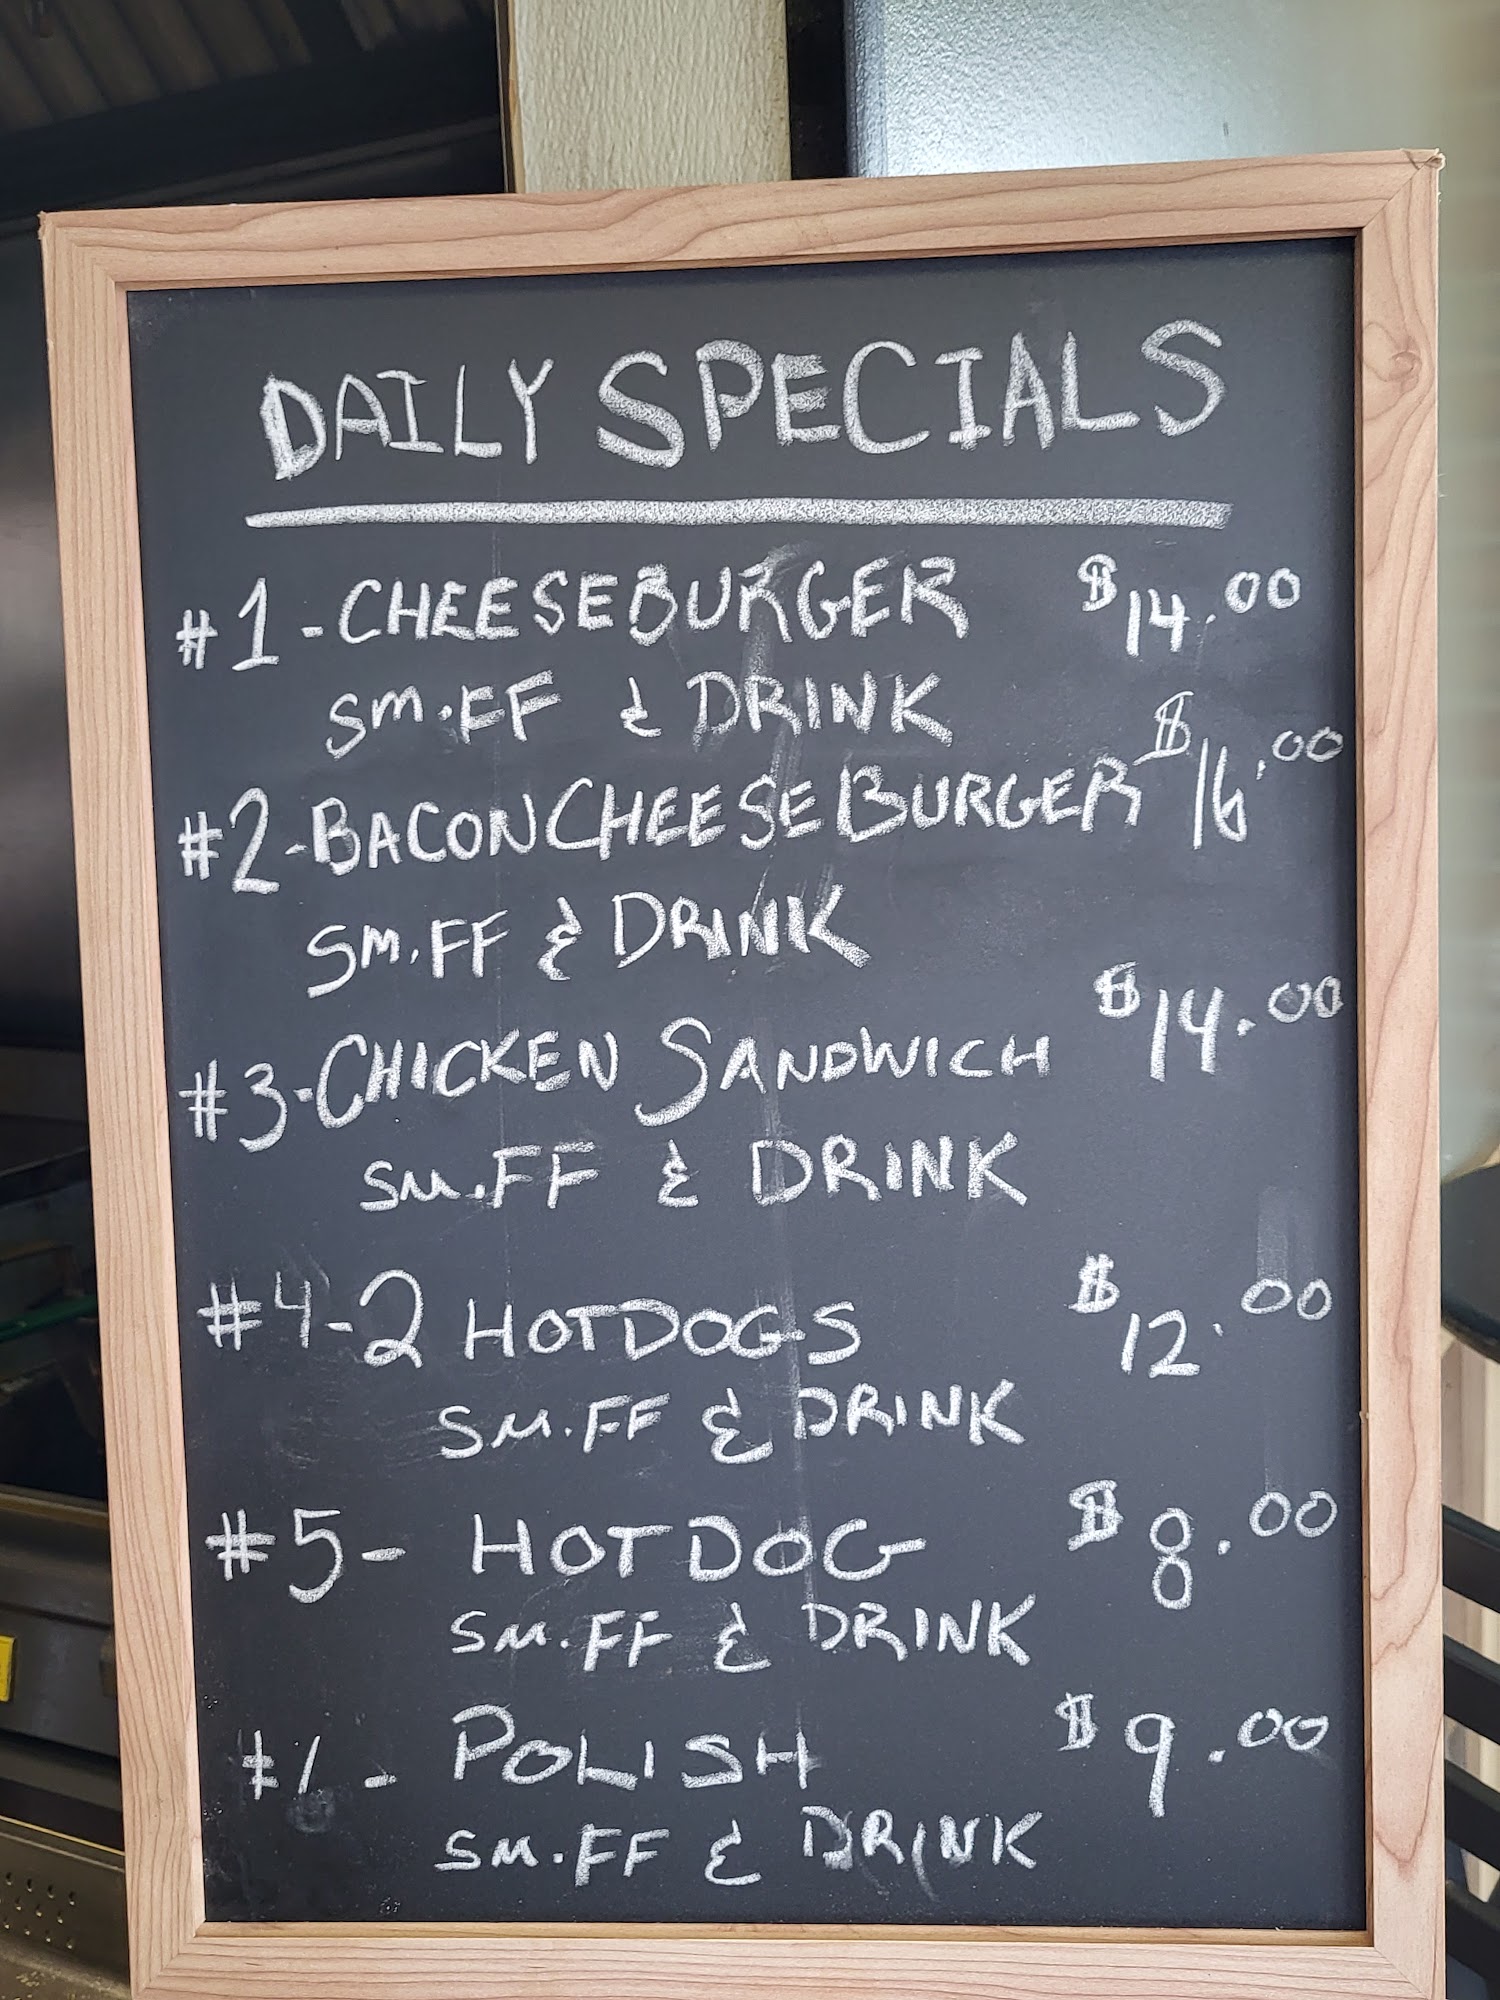 DAILY SPECIALS
#1-CHEESEBURGER $14.00
SM.FF & DRINK
#2-BACONCHEESEBURGER $16.00
SM.FF & DRINK
#3-CHICKEN SANDWICH $14.00
SM.FF & DRINK
#4-2 HOTDOGS $12.00
SM.FF & DRINK
#5- HOTDOG $8.00
SM.FF & DRINK
- POLISH $9.00
SM.FF & DRINK